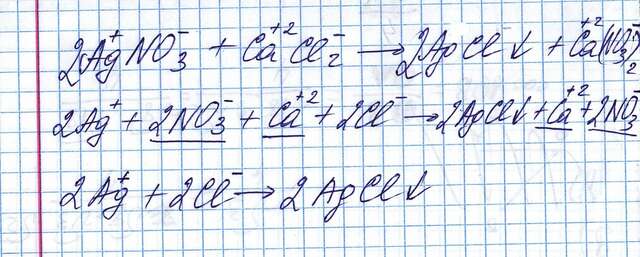 2Ag⁺NO₃⁻ + Ca⁺²Cl₂⁻ → 2AgCl↓ + Ca⁺²(NO₃⁻)₂
2Ag⁺ + 2NO₃⁻ + Ca⁺² + 2Cl⁻ → 2AgCl↓ + Ca⁺² + 2NO₃⁻
2Ag⁺ + 2Cl⁻ → 2AgCl↓